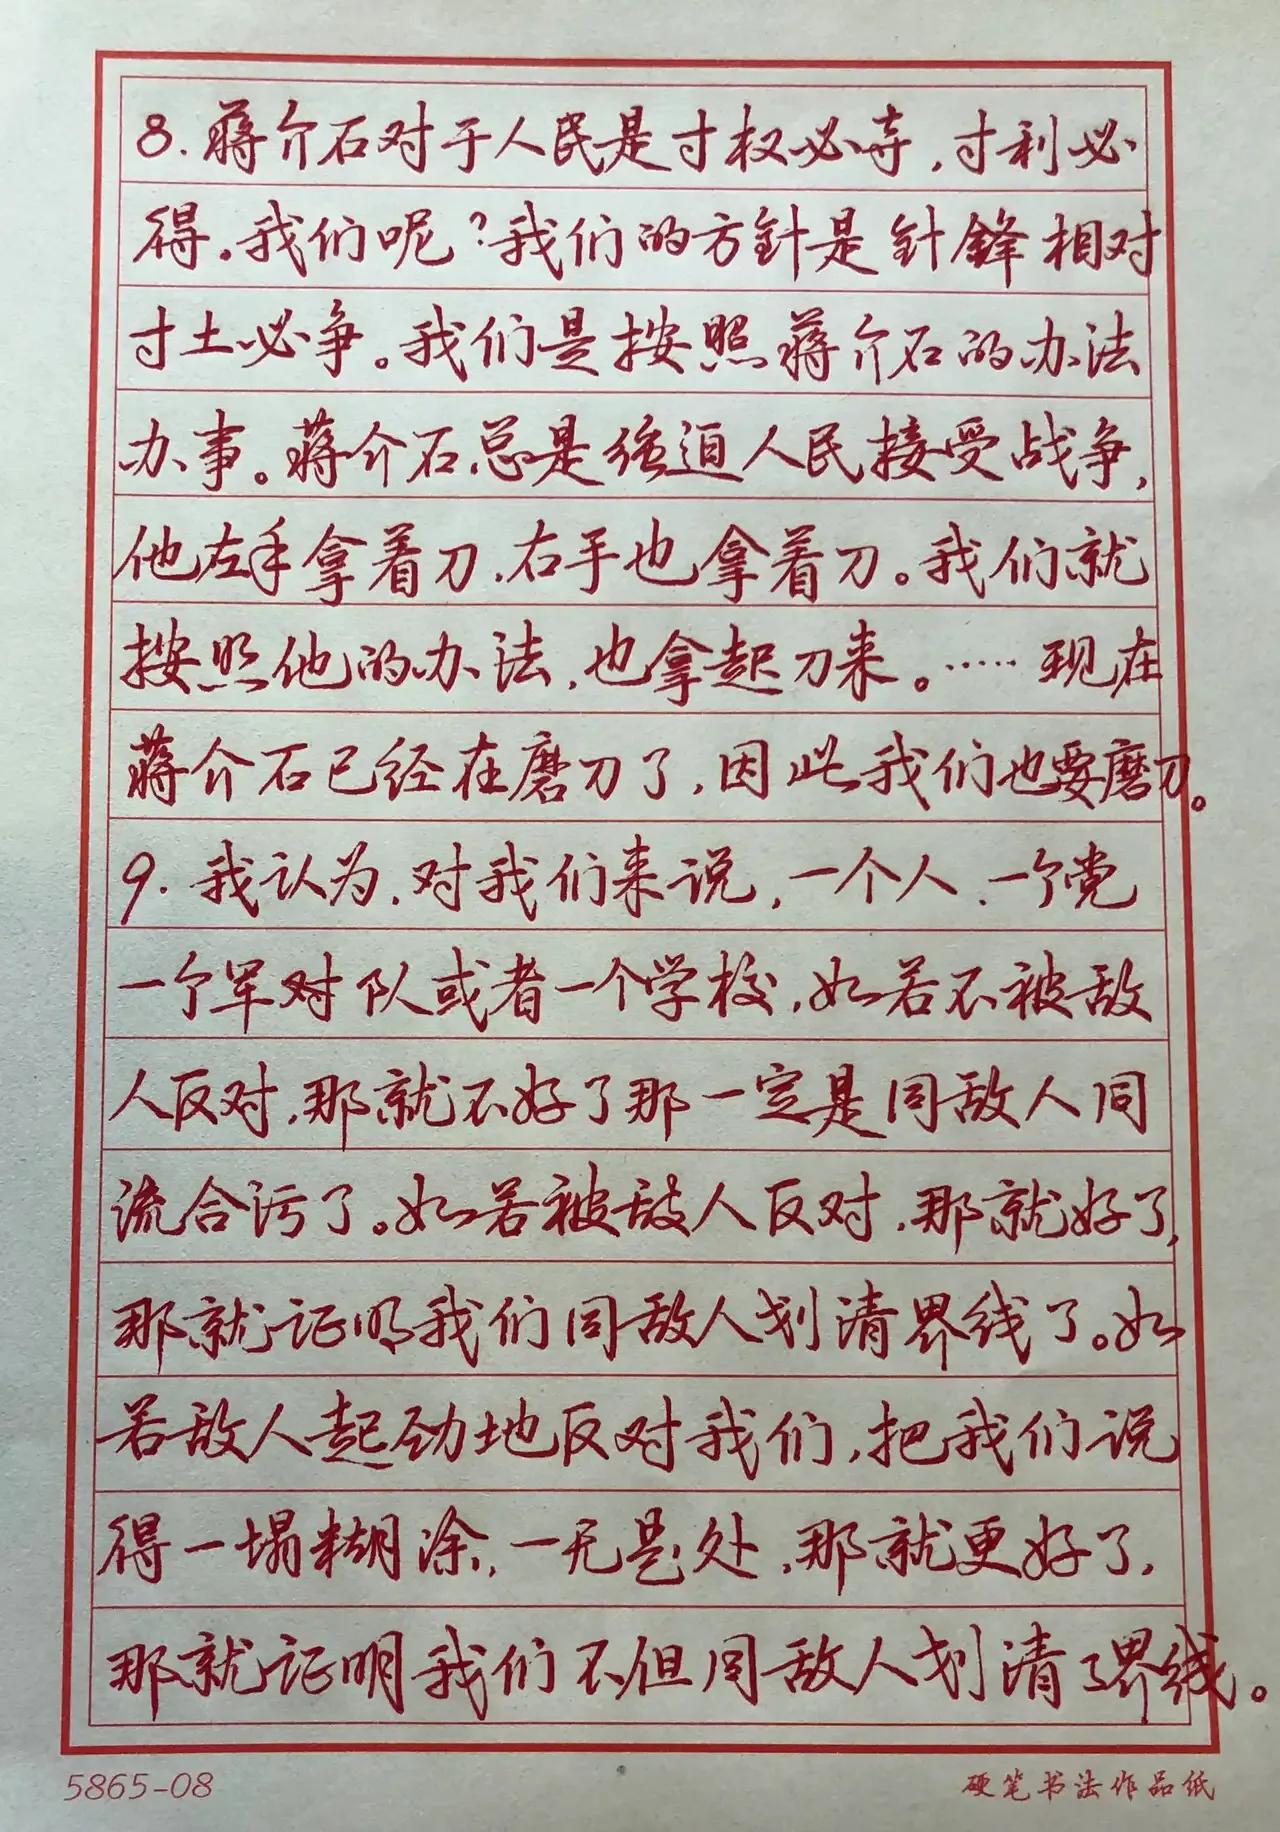 8.蒋介石对于人民是寸权必夺,寸利必
得。我们呢?我们的方針是針鋒相对
寸土必争。我们是按照蒋介石的办法
办事。蒋介石总是强迫人民接受战争,
他左手拿着刀,右手也拿着刀。我们就
按照他的办法,也拿起刀来。……现在
蒋介石已经在磨刀了,因此我们也要磨刀。
9.我认为,对我们来说,一个人、一个党
一个军对队或者一个学校,如若不被敌
人反对,那就不好了那一定是同敌人同
流合污了。如若被敌人反对,那就好了,
那就证明我们同敌人划清界线了。如
若敌人起劲地反对我们,把我们说
得一塌糊涂,一无是处,那就更好了,
那就证明我们不但同敌人划清了界线。
5865-08 硬笔书法作品纸